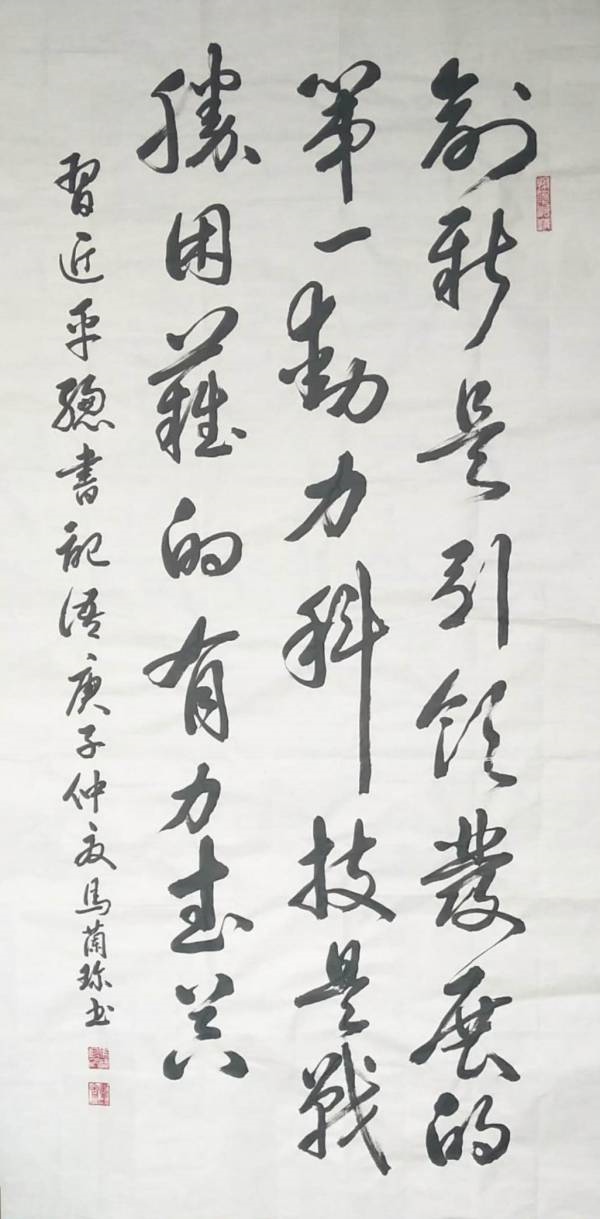 創新是引領發展的
第一動力科技是戰
勝困難的有力武器
習近平總書記語庚子仲夏馬蘭珍书